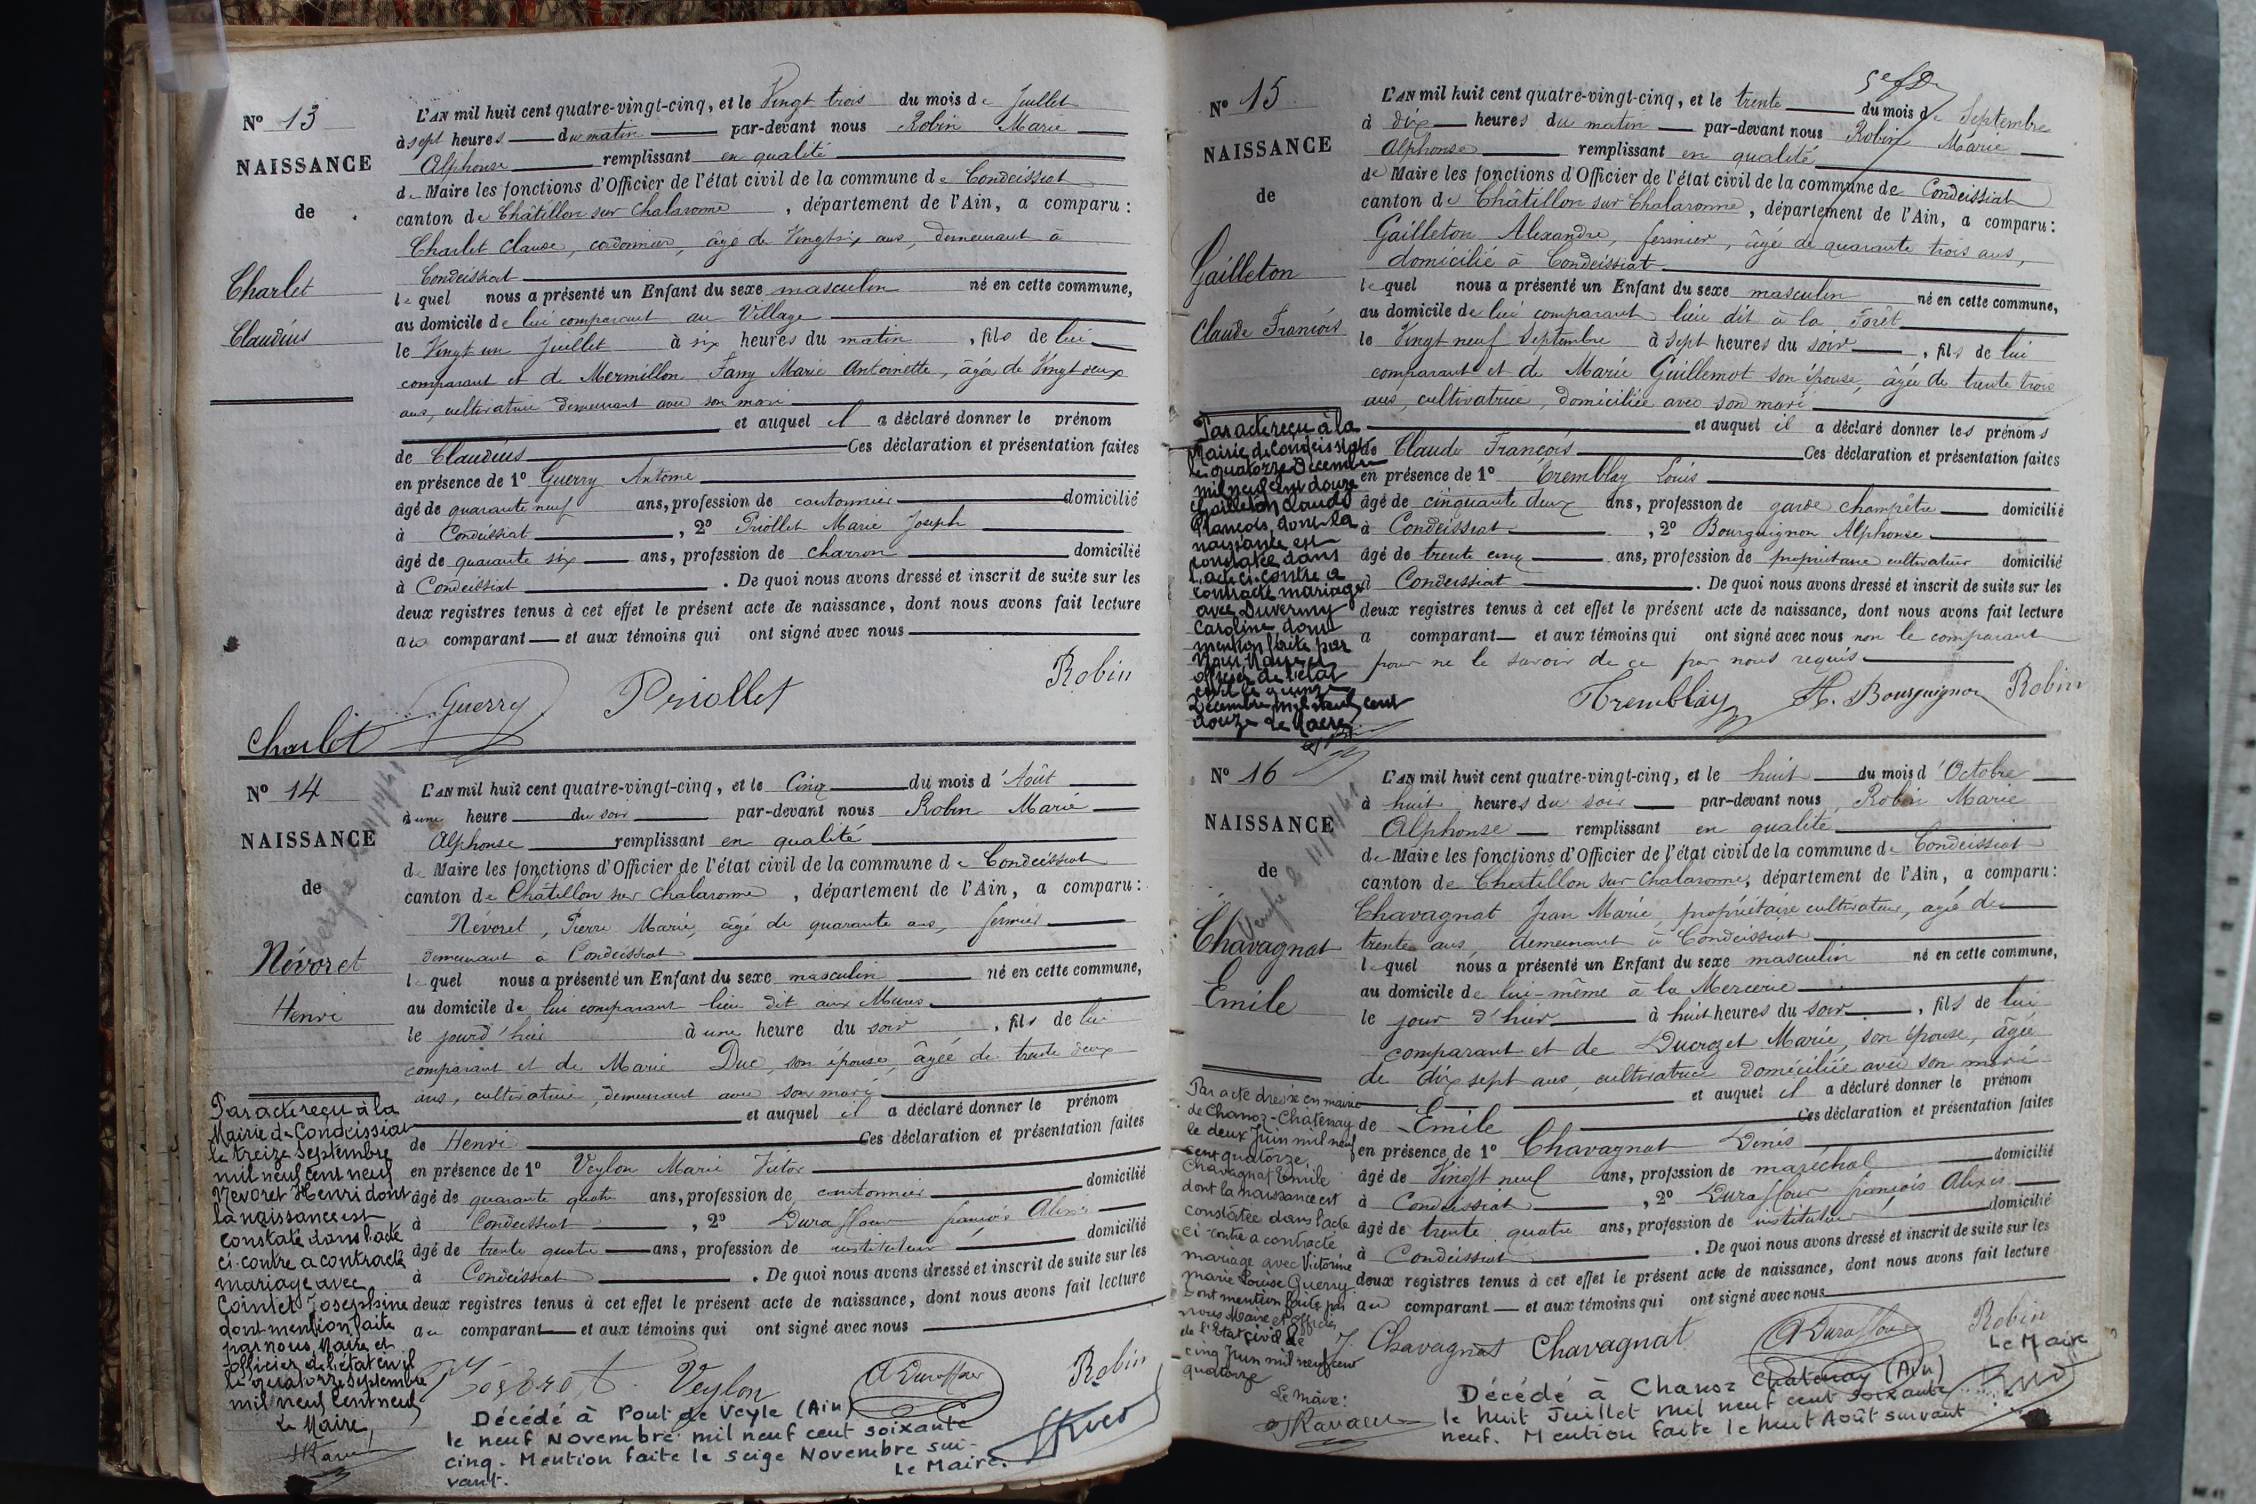 N° 13
NAISSANCE
de
Charlet
Claudius
L'AN mil huit cent quatre-vingt-cinq, et le Vingt trois du mois de Juillet
à sept heures du matin par-devant nous Robin Marie
Alphonse remplissant en qualité
de Maire les fonctions d'Officier de l'état civil de la commune de Condeissiat
canton de Châtillon sur Chalaronne, département de l'Ain, a comparu:
Charlet Claude, cordonnier, âgé de Vingt six ans, demeurant à
Condeissiat
lequel nous a présenté un Enfant du sexe masculin né en cette commune,
au domicile de lui comparant au Village
le Vingt un Juillet à six heures du matin, fils de lui
comparant et de Mermillon Fany Marie Antoinette, âgée de Vingt deux
ans, cultivatrice demeurant avec son mari
et auquel il a déclaré donner le prénom
de Claudius Ces déclaration et présentation faites
en présence de 1° Guerry Antoine
âgé de quarante neuf ans, profession de cantonnier domicilié
à Condeissiat, 2° Priollet Marie Joseph
âgé de quarante six ans, profession de charron domicilié
à Condeissiat. De quoi nous avons dressé et inscrit de suite sur les
deux registres tenus à cet effet le présent acte de naissance, dont nous avons fait lecture
au comparant et aux témoins qui ont signé avec nous
Robin
Guerry Priollet
Charlet
N° 14
NAISSANCE
de
Névoret
Henri
L'AN mil huit cent quatre-vingt-cinq, et le Cinq du mois d'Août
à une heure du soir par-devant nous Robin Marie
Alphonse remplissant en qualité
de Maire les fonctions d'Officier de l'état civil de la commune de Condeissiat
canton de Châtillon sur Chalaronne, département de l'Ain, a comparu:
Névoret, Pierre Marie, âgé de quarante ans, fermier
demeurant à Condeissiat
lequel nous a présenté un Enfant du sexe masculin né en cette commune,
au domicile de lui comparant lieu dit aux Mures
le jourd'hui à une heure du soir, fils de lui
comparant et de Marie Duc, son épouse, âgée de trente deux
ans, cultivatrice, demeurant avec son mari
et auquel il a déclaré donner le prénom
de Henri Ces déclaration et présentation faites
en présence de 1° Veylon Marie Victor
âgé de quarante quatre ans, profession de cantonnier domicilié
à Condeissiat, 2° Duraffour françois Alexis
âgé de trente quatre ans, profession de instituteur domicilié
à Condeissiat. De quoi nous avons dressé et inscrit de suite sur les
deux registres tenus à cet effet le présent acte de naissance, dont nous avons fait lecture
au comparant et aux témoins qui ont signé avec nous
Veylon A Duraffour Robin
Par acte reçu à la
Mairie de Condeissiat
le treize Septembre
mil neuf cent neuf
Névoret Henri dont
la naissance est
constaté dans l'acte
ci-contre a contracté
mariage avec
Cointet Josephine
dont mention faite
par nous, Maire et
officier de l'état civil
le quatorze Septembre
mil neuf cent neuf
Le Maire,
Décédé à Pont de Veyle (Ain)
le neuf Novembre mil neuf cent soixante
cinq. Mention faite le seize Novembre sui-
vant. Le Maire.
N° 15
NAISSANCE
de
Gailleton
Claude François
L'AN mil huit cent quatre-vingt-cinq, et le trente du mois de Septembre
à dix heures du matin par-devant nous Robin Marie
Alphonse remplissant en qualité
de Maire les fonctions d'Officier de l'état civil de la commune de Condeissiat
canton de Châtillon sur Chalaronne, département de l'Ain, a comparu:
Gailleton Alexandre, fermier, âgé de quarante trois ans,
domicilié à Condeissiat
lequel nous a présenté un Enfant du sexe masculin né en cette commune,
au domicile de lui comparant lieu dit à la Forêt
le Vingt neuf Septembre à sept heures du soir, fils de lui
comparant et de Marie Guillemot son épouse, âgée de trente trois
ans, cultivatrice, domiciliée avec son mari
et auquel il a déclaré donner les prénoms
de Claude François Ces déclaration et présentation faites
en présence de 1° Tremblay Louis
âgé de cinquante deux ans, profession de garde champêtre domicilié
à Condeissiat, 2° Bourguignon Alphonse
âgé de trente cinq ans, profession de propriétaire cultivateur domicilié
à Condeissiat. De quoi nous avons dressé et inscrit de suite sur les
deux registres tenus à cet effet le présent acte de naissance, dont nous avons fait lecture
a comparant et aux témoins qui ont signé avec nous non le comparant
pour ne le savoir de ce par nous requis
Tremblay A. Bourguignon Robin
Par acte reçu à la
Mairie de Condeissiat
le quatorze Décembre
mil neuf cent douze
Gailleton Claude
François, dont la
naissance est
constatée dans
l'acte ci-contre a
contracté mariage
avec Duverny
Caroline, dont
mention faite par
nous, Maire et
officier de l'état
civil le quinze
Décembre mil neuf cent
douze Le Maire
N° 16
NAISSANCE
de
Chavagnat
Emile
L'AN mil huit cent quatre-vingt-cinq, et le huit du mois d'Octobre
à huit heures du soir par-devant nous Robin Marie
Alphonse remplissant en qualité
de Maire les fonctions d'Officier de l'état civil de la commune de Condeissiat
canton de Châtillon sur Chalaronne, département de l'Ain, a comparu:
Chavagnat Jean Marie, propriétaire cultivateur, âgé de
trente ans, demeurant à Condeissiat
lequel nous a présenté un Enfant du sexe masculin né en cette commune,
au domicile de lui-même à la Mercerie
le jour d'hier à huit heures du soir, fils de lui
comparant et de Ducrozet Marie, son épouse, âgée
de dix sept ans, cultivatrice domiciliée avec son mari
et auquel il a déclaré donner le prénom
de Emile Ces déclaration et présentation faites
en présence de 1° Chavagnat Denis
âgé de Vingt neuf ans, profession de maréchal domicilié
à Condeissiat, 2° Duraffour françois Alexis
âgé de trente quatre ans, profession de instituteur domicilié
à Condeissiat. De quoi nous avons dressé et inscrit de suite sur les
deux registres tenus à cet effet le présent acte de naissance, dont nous avons fait lecture
au comparant et aux témoins qui ont signé avec nous
J. Chavagnat Chavagnat A Duraffour Robin
Par acte dressé en mairie
de Chanoz-Chatenay
le deux Juin mil neuf
cent quatorze,
Chavagnat Emile
dont la naissance est
constatée dans l'acte
ci contre a contracté
mariage avec Victorine
Marie Louise Guerry.
Dont mention faite par
nous Maire et officier
de l'Etat civil le
cinq Juin mil neuf cent
quatorze
Le Maire:
Décédé à Chanoz Chatenay (Ain)
le huit Juillet mil neuf cent soixante
neuf. Mention faite le huit Août suivant
Le Maire